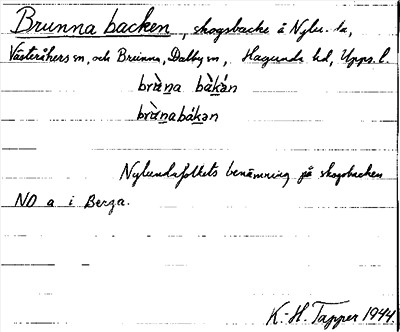 Brunna backen, skogsbacke å Nylu. la,
Västeråkers sn, och Brunna, Dalby sn, Hagunda hd, Upps. l.
brùna bàkán
brùnabákan
Nylundafolkets benämning på skogsbacken
NO a i Berga.
K.-H. Tapper 1944.